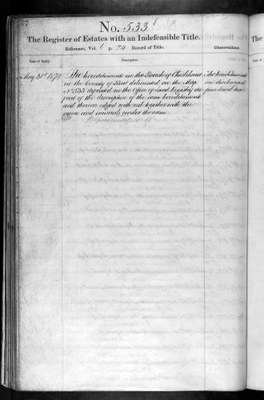 No. 533
The Register of Estates with an Indefeasible Title.
Reference, Vol. p. 74 Record of Title.
Observations.
Date of Registry.
Description.
May 31st 1870
The hereditaments in the Parish of Chislehurst
in the County of Kent delineated on the Map
No 533 deposited in the Office of Land Registry as
part of the description of the same hereditaments
and thereon edged with red together with the
mines and minerals under the same